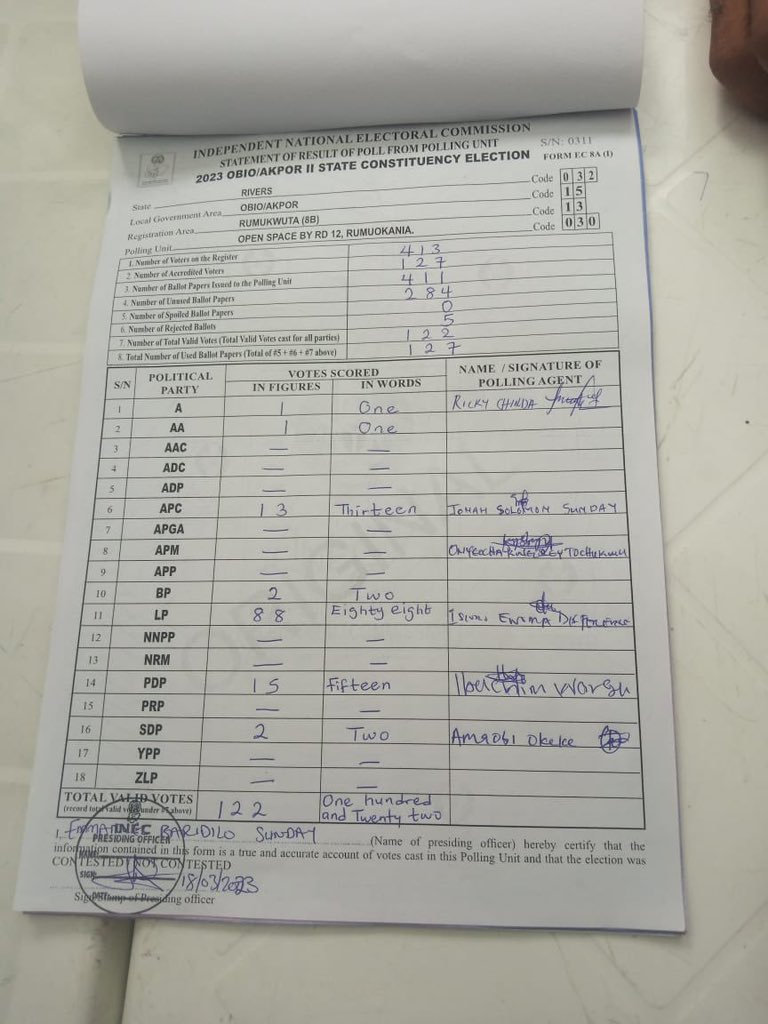 INDEPENDENT NATIONAL ELECTORAL COMMISSION
STATEMENT OF RESULT OF POLL FROM POLLING UNIT S/N: 0311
2023 OBIO/AKPOR II STATE CONSTITUENCY ELECTION FORM EC 8A (I)
State RIVERS Code 032
Local Government Area OBIO/AKPOR Code 15
Registration Area RUMUKWUTA (8B) Code 13
Polling Unit OPEN SPACE BY RD 12, RUMUOKANIA. Code 030
1. Number of Voters on the Register 413
2. Number of Accredited Voters 127
3. Number of Ballot Papers Issued to the Polling Unit 411
4. Number of Unused Ballot Papers 284
5. Number of Spoiled Ballot Papers 0
6. Number of Rejected Ballots 5
7. Number of Total Valid Votes (Total Valid Votes cast for all parties) 122
8. Total Number of Used Ballot Papers (Total of #5 + #6 + #7 above) 127
S/N POLITICAL PARTY VOTES SCORED NAME / SIGNATURE OF POLLING AGENT
IN FIGURES IN WORDS
1 A 1 One RICKY CHINDA
2 AA 1 One
3 AAC — —
4 ADC — —
5 ADP — —
6 APC 13 Thirteen JONAH SOLOMON SUNDAY
7 APGA — —
8 APM — — KINGSLEY TOCHUKWU
9 APP — —
10 BP 2 Two
11 LP 88 Eighty eight
12 NNPP — —
13 NRM — —
14 PDP 15 Fifteen
15 PRP — —
16 SDP 2 Two Amaobi Okeke
17 YPP — —
18 ZLP — —
TOTAL VALID VOTES 122 One hundred
(record total valid votes under #7 above) and Twenty two
I, EMMANUEL BARIDILO SUNDAY (Name of presiding officer) hereby certify that the
information contained in this form is a true and accurate account of votes cast in this Polling Unit and that the election was
CONTESTED / NOT CONTESTED
18/03/2023
Sign/Stamp of Presiding officer
INEC
PRESIDING OFFICER
NAME
SIGN
DATE
ORIGINAL